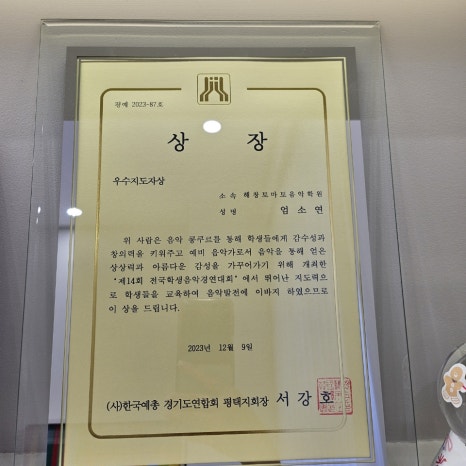 평예 2023-87호
상 장
우수지도자상
소 속 해창토마토음악학원
성 명 엄 소 연
위 사람은 음악 콩쿠르를 통해 학생들에게 감수성과
창의력을 키워주고 예비 음악가로서 음악을 통해 얻은
상상력과 아름다운 감성을 가꾸어가기 위해 개최한
"제14회 전국학생음악경연대회" 에서 뛰어난 지도력으
로 학생들을 교육하여 음악발전에 이바지 하였으므로
이 상을 드립니다.
2023년 12월 9일
(사)한국예총 경기도연합회 평택지회장 서 강 호